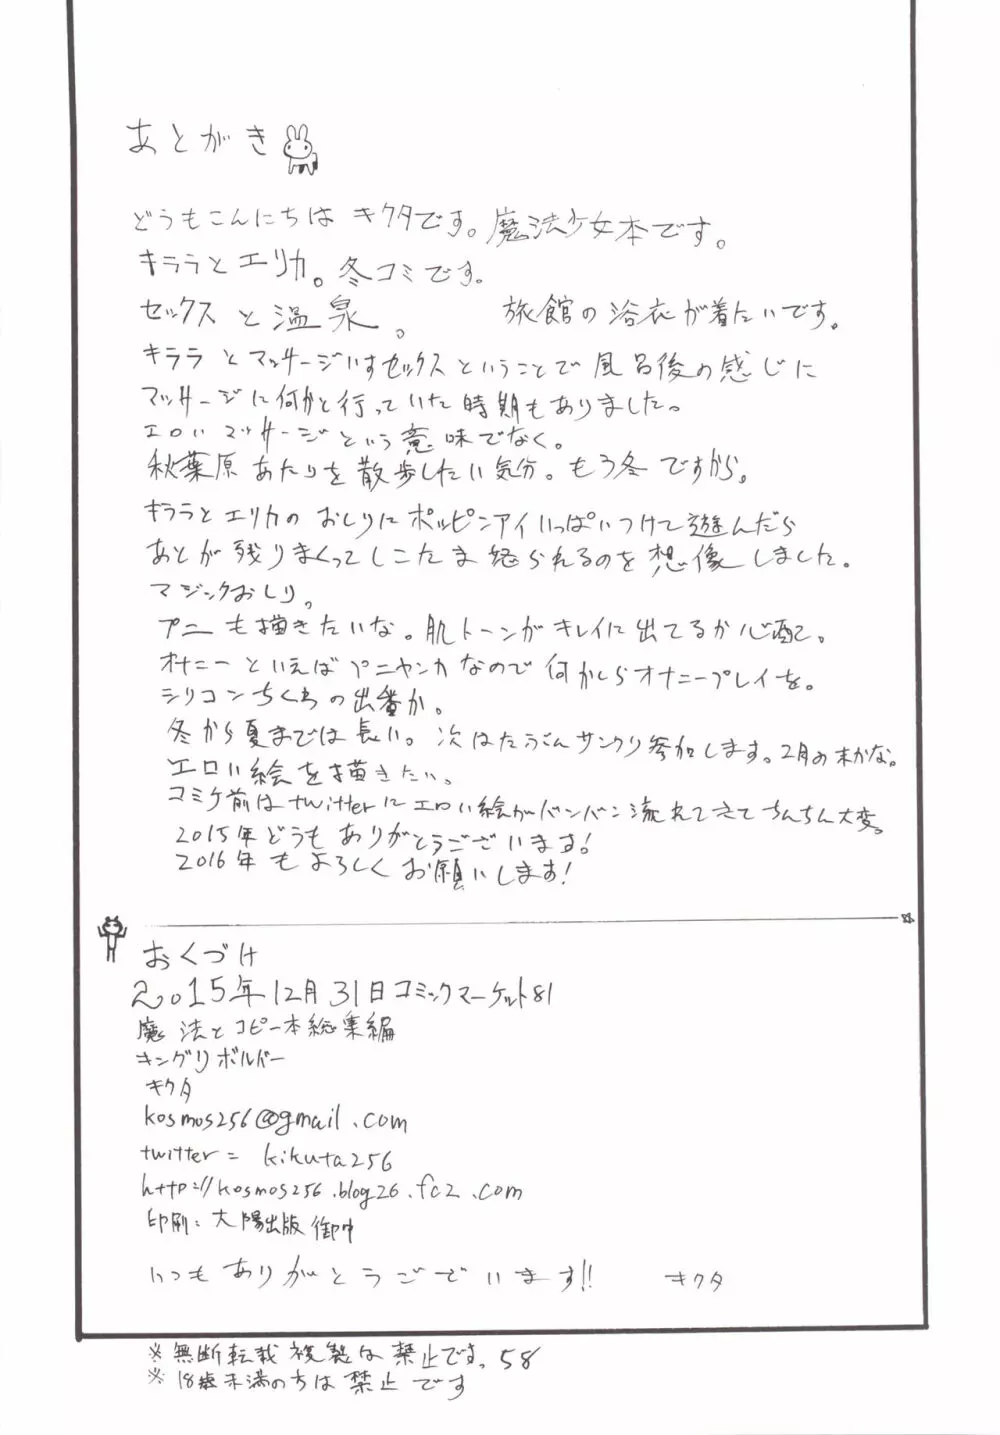 あとがき
どうもこんにちは キクタです。魔法少女本です。
キララとエリカ。冬コミです。
セックスと温泉。 旅館の浴衣が着たいです。
キララとマッサージいすセックスということで風呂後の感じに
マッサージに何かと行っていた時期もありました。
エロいマッサージという意味でなく。
秋葉原あたりを散歩したい気分。もう冬ですから。
キララとエリカのおしりにポッピンアイいっぱいつけて遊んだら
あとが残りまくってしこたま怒られるのを想像しました。
マジックおしり。
プニも描きたいな。肌トーンがキレイに出てるか心配。
オナニーといえばプニャンカなので何かしらオナニープレイを。
シリコンちくわの出番か。
冬から夏までは長い。次はたぶんサンクリ参加します。2月の末かな。
エロい絵を描きたい。
コミケ前はtwitterにエロい絵がバンバン流れてきてちんちん大変。
2015年どうもありがとうございます!
2016年もよろしくお願いします!
おくづけ
2015年12月31日コミックマーケット81
魔法とコピー本総集編
キングリボルバー
キクタ
kosmos256@gmail.com
twitter= kikuta256
http://kosmos256.blog26.fc2.com
印刷: 大陽出版 御中
いつもありがとうございます!! キクタ
※無断転載 複製は禁止です。58
※18歳未満の方は禁止です